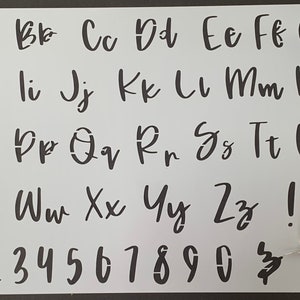 Bb Cc Dd Ee Ff
Ii Jj Kk Ll Mm
Pp Qq Rr Ss Tt
Ww Xx Yy Zz !
3 4 5 6 7 8 9 0 &